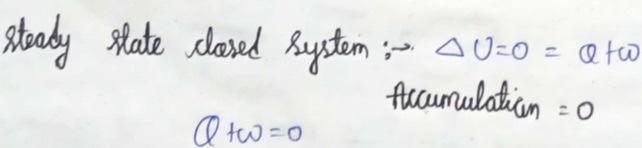 Steady state closed system :→ ΔU=0 = Q+W
Accumulation = 0
Q+W=0